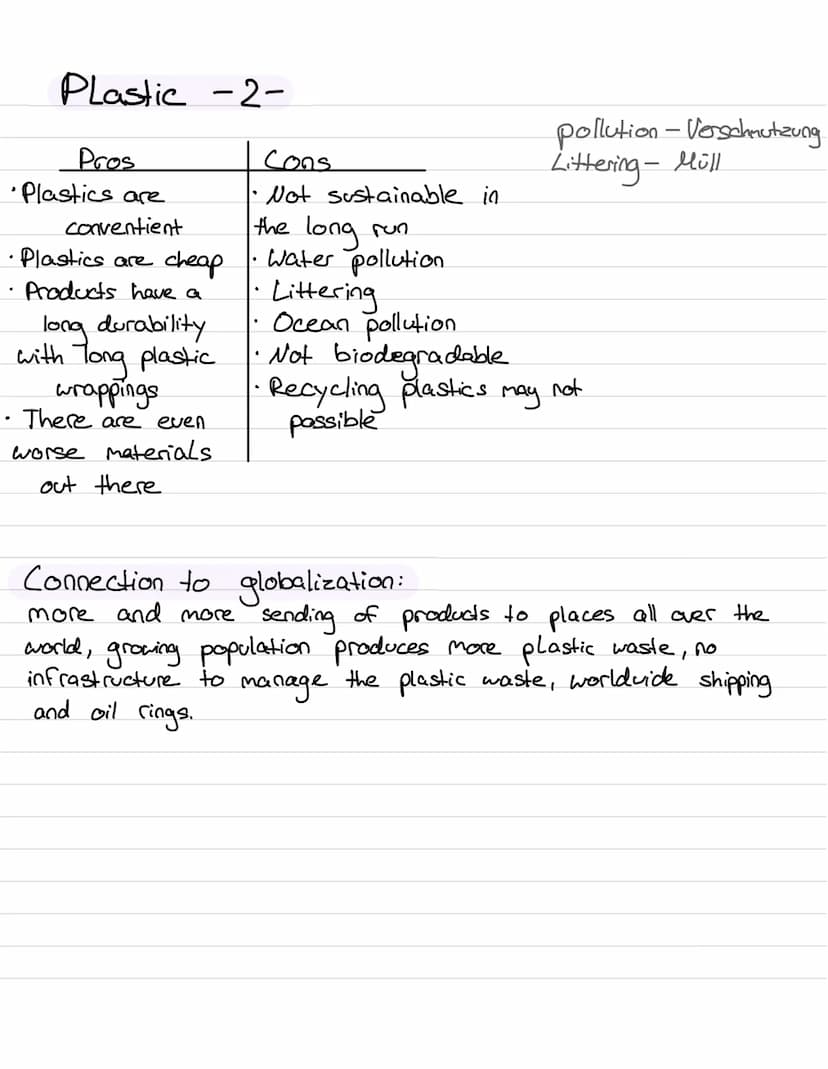 Plastic -2-
pollution - Verschmutzung
Littering - Müll
Pros
· Plastics are
conventient
· Plastics are cheap
· Products have a
long durability
with long plastic
wrappings
· There are even
worse materials
out there
Cons
· Not sustainable in
the long run
· Water pollution
· Littering
· Ocean pollution
· Not biodegradable
· Recycling plastics may not
possible
Connection to globalization:
more and more sending of products to places all over the
world, growing population produces more plastic waste, no
infrastructure to manage the plastic waste, worldwide shipping
and oil rings.